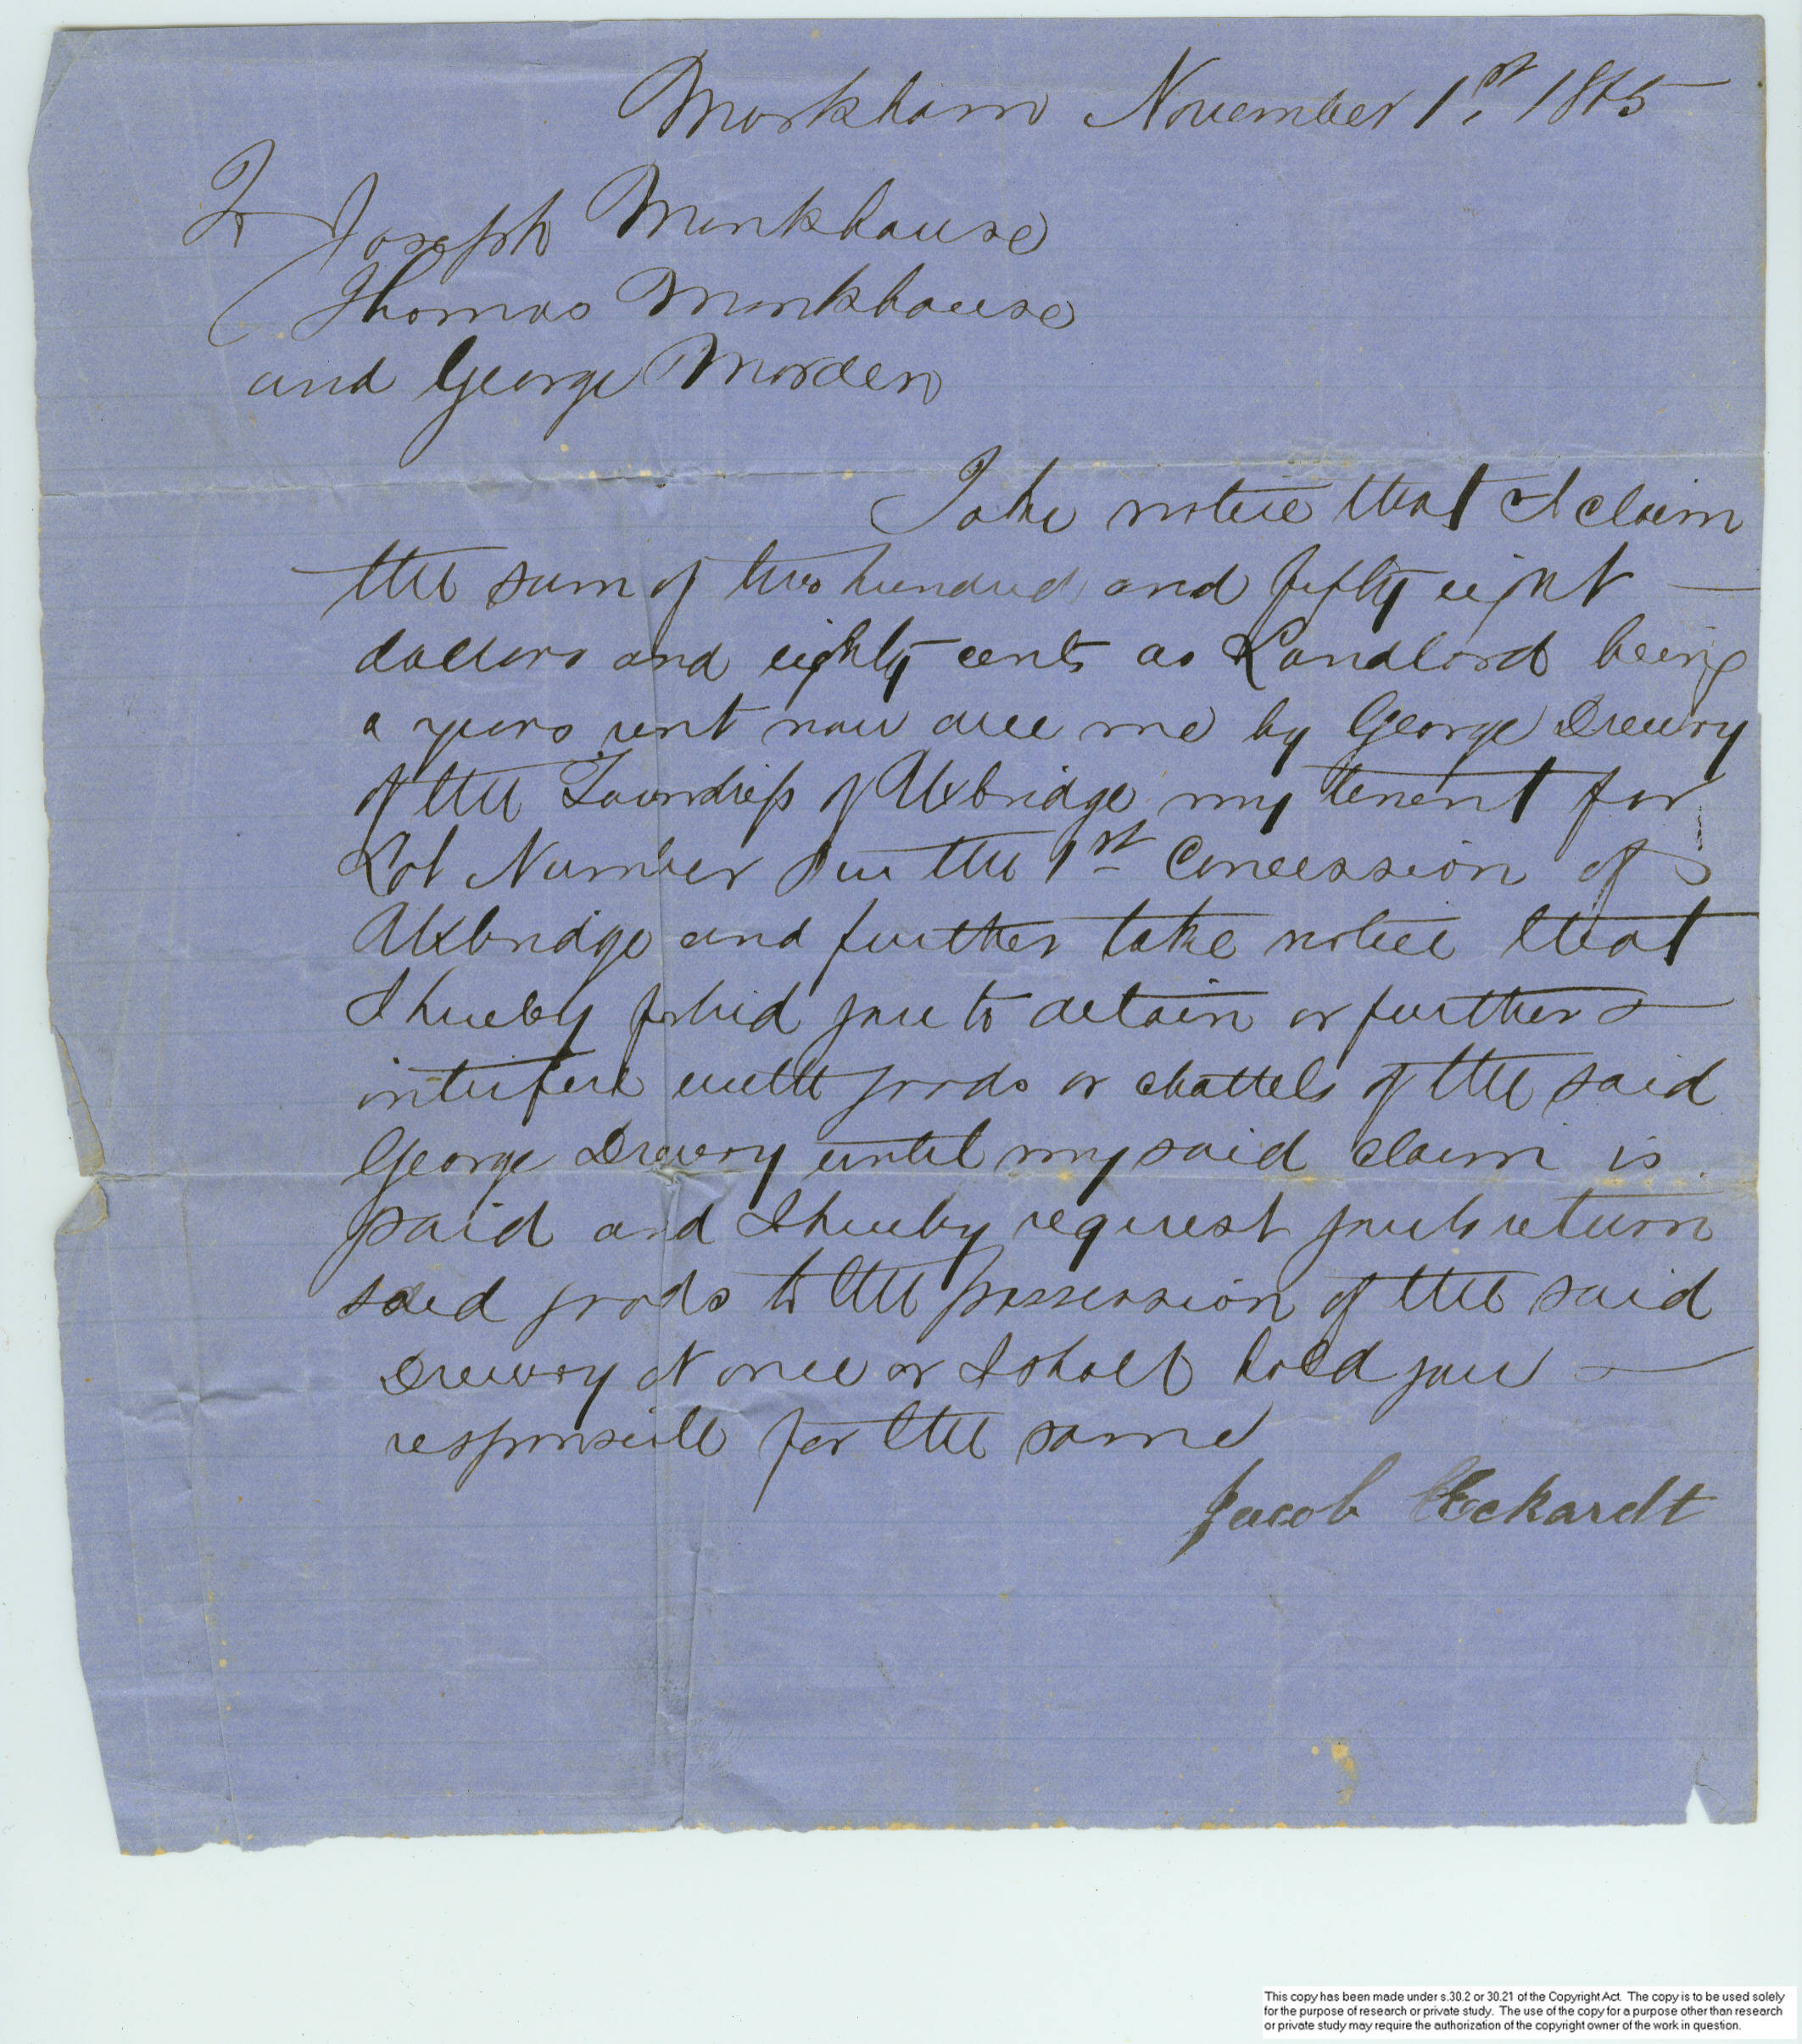 Markham November 1st, 1865
To Joseph Monkhouse
Thomas Monkhouse
and George Morden
Take notice that I claim
the sum of two hundred and fifty eight
dollars and eighty cents as Landlord being
a years rent now due me by George Drewry
of the Township of Uxbridge my tenent for
Lot Number in the 1st Concession of
Uxbridge and further take notice that
I hereby forbid you to detain or further
interfere with goods or chattels of the said
George Drewry until my said claim is
paid and I hereby request you to return
said goods to the possession of the said
Drewry at once or I shall hold you
responsible for the same
Jacob Eckardt
This copy has been made under s.30.2 or 30.21 of the Copyright Act. The copy is to be used solely
for the purpose of research or private study. The use of the copy for a purpose other than research
or private study may require the authorization of the copyright owner of the work in question.